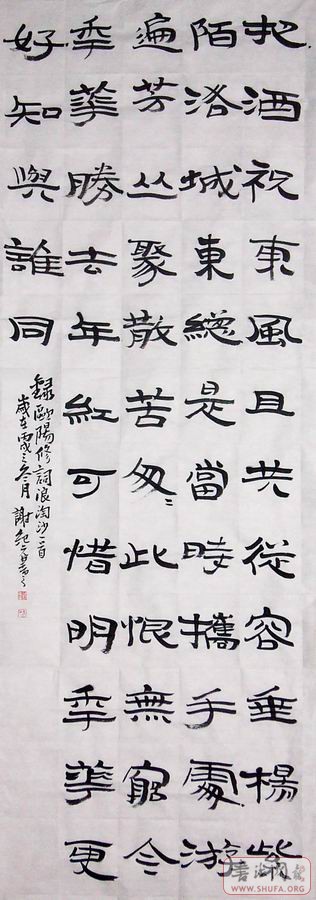 把酒祝東風且共從容垂楊紫
陌洛城東總是當時攜手處游
遍芳丛聚散苦匆〻此恨無窮今
秊華勝去年紅可惜明秊華更
好知與誰同
錄歐陽修詞浪淘沙一首
歲在冬月 謝紀
WWW.SHUFA.ORG